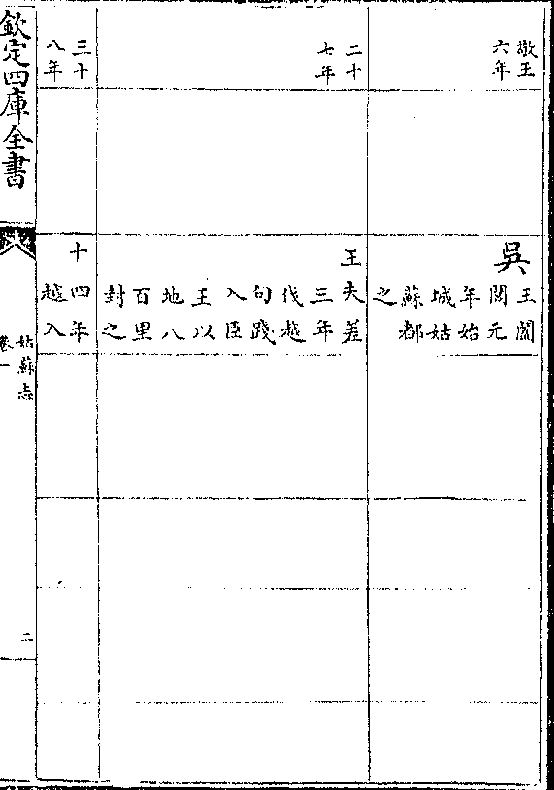 敬王
六年
吳
王闔
閭元
年始
城姑
蘇都
之
二十
七年
王夫差
三年
伐越
句踐
入臣
王以
地八
百里
封之
三十
八年
十四年
越入
欽定四庫全書
姑蘇志
卷一
二